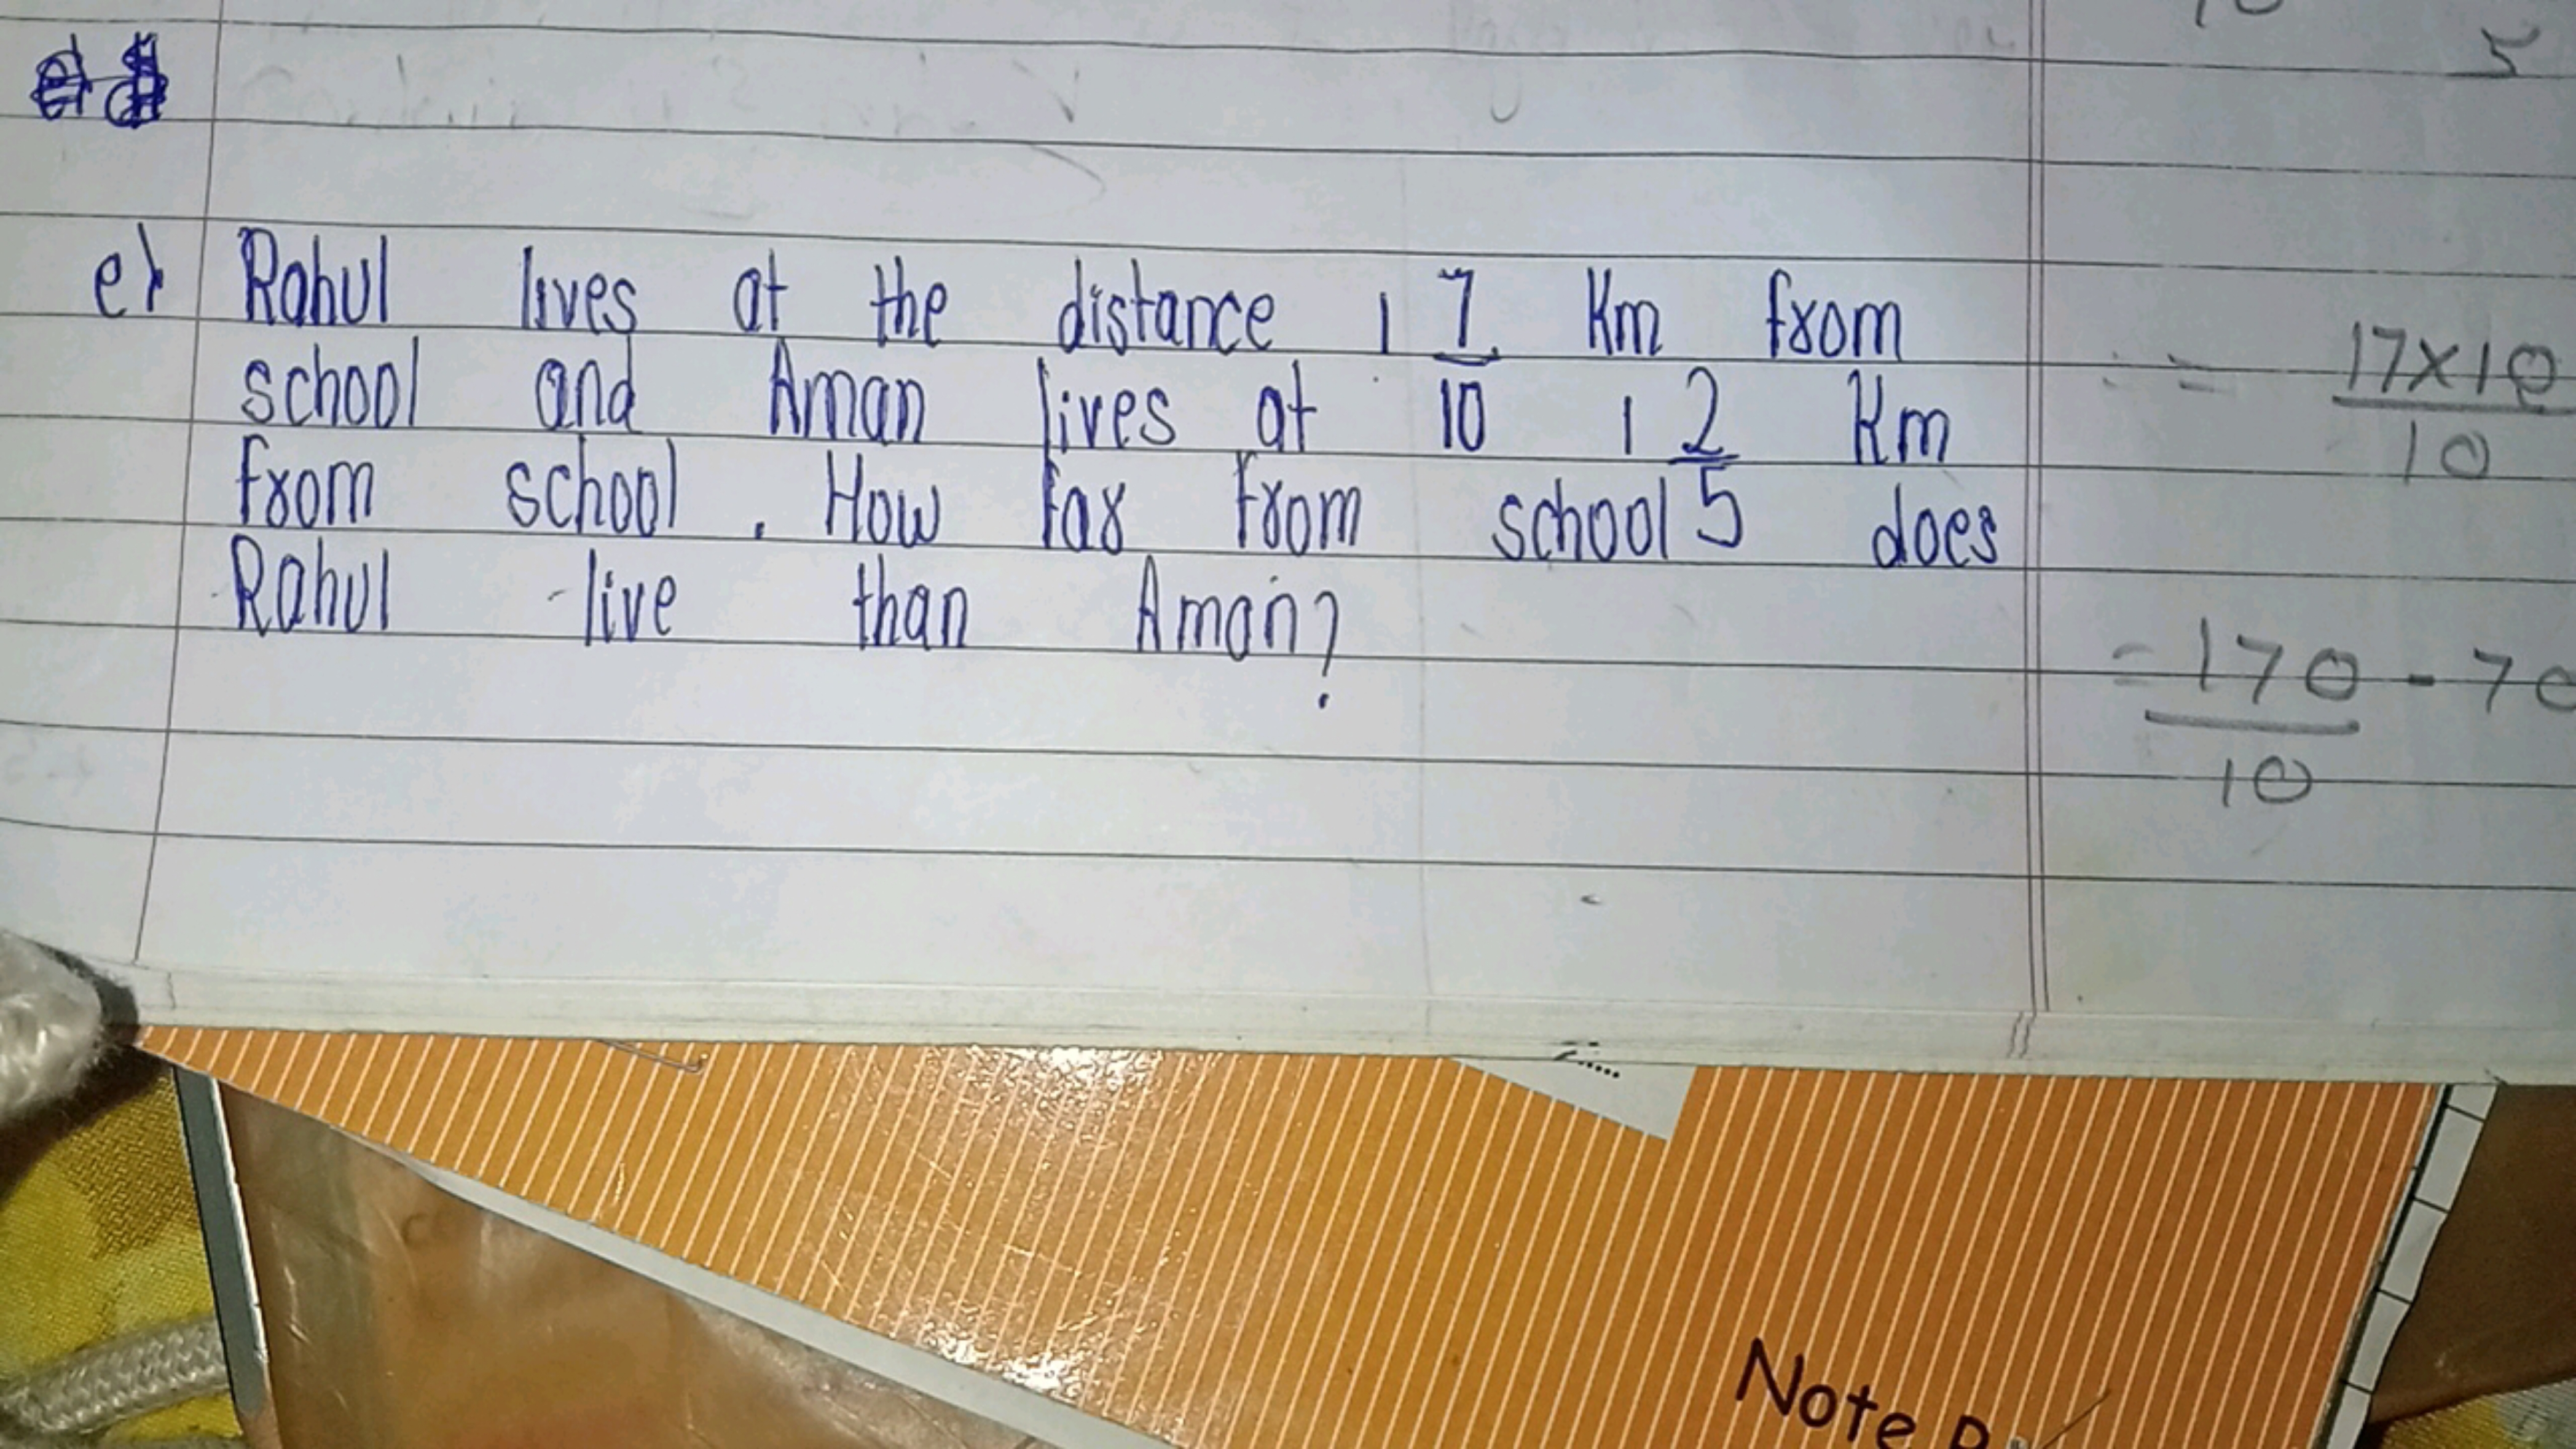 e) Rahul lives at the distance 1 7/10 Km from
school and Aman lives at 1 2/5 Km
from school . How far from school does
Rahul live than Aman?
5
= 17×10
10
= 170 - 70
10
Note